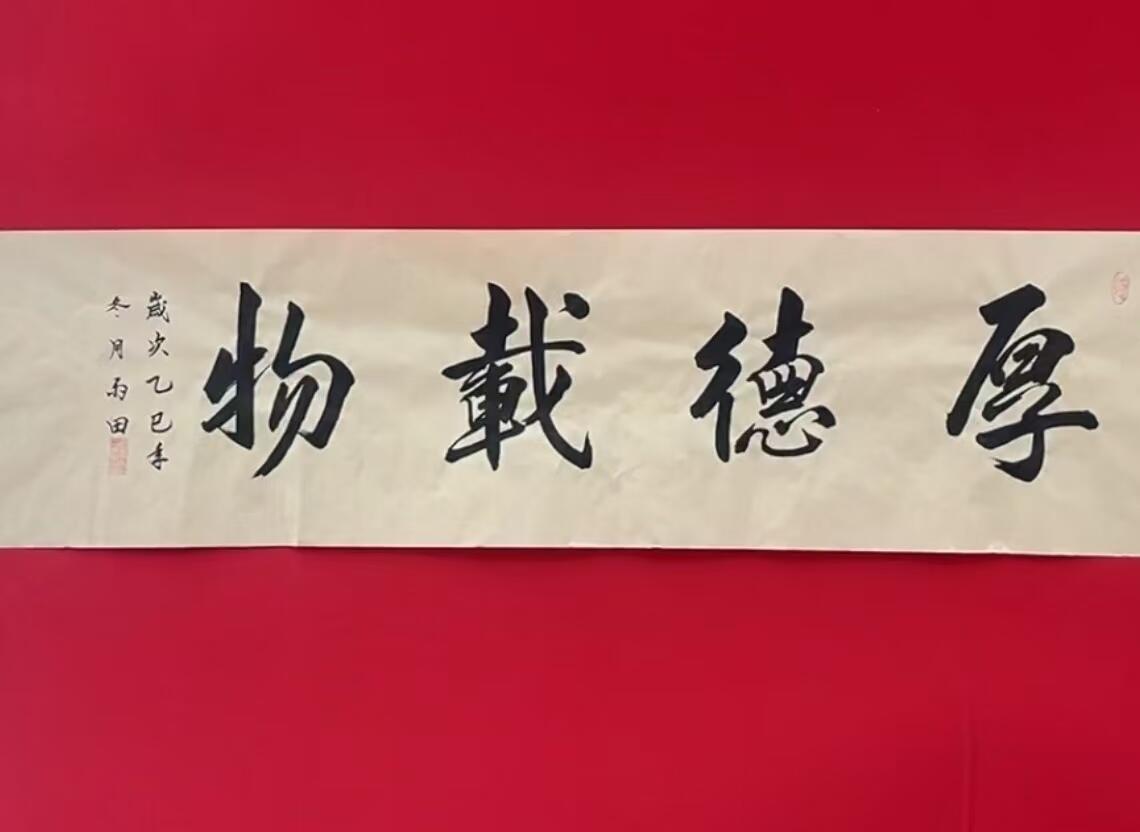 厚德載物
歲次乙巳年
冬月雨田